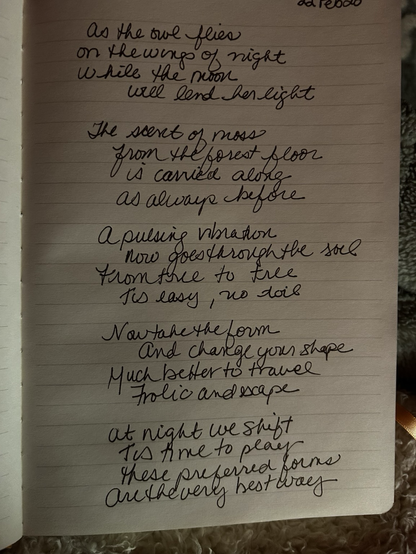 22 Feb20
As the owl flies
on the wings of night
while the moon
will lend her light
The scent of moss
from the forest floor
is carried along
as always before
A pulsing vibration
Now goes through the soil
From tree to tree
Tis easy, no toil
Now take the form
And change your shape
Much better to travel
Frolic and escape
At night we shift
Tis time to play
these preferred forms
Are the very best way